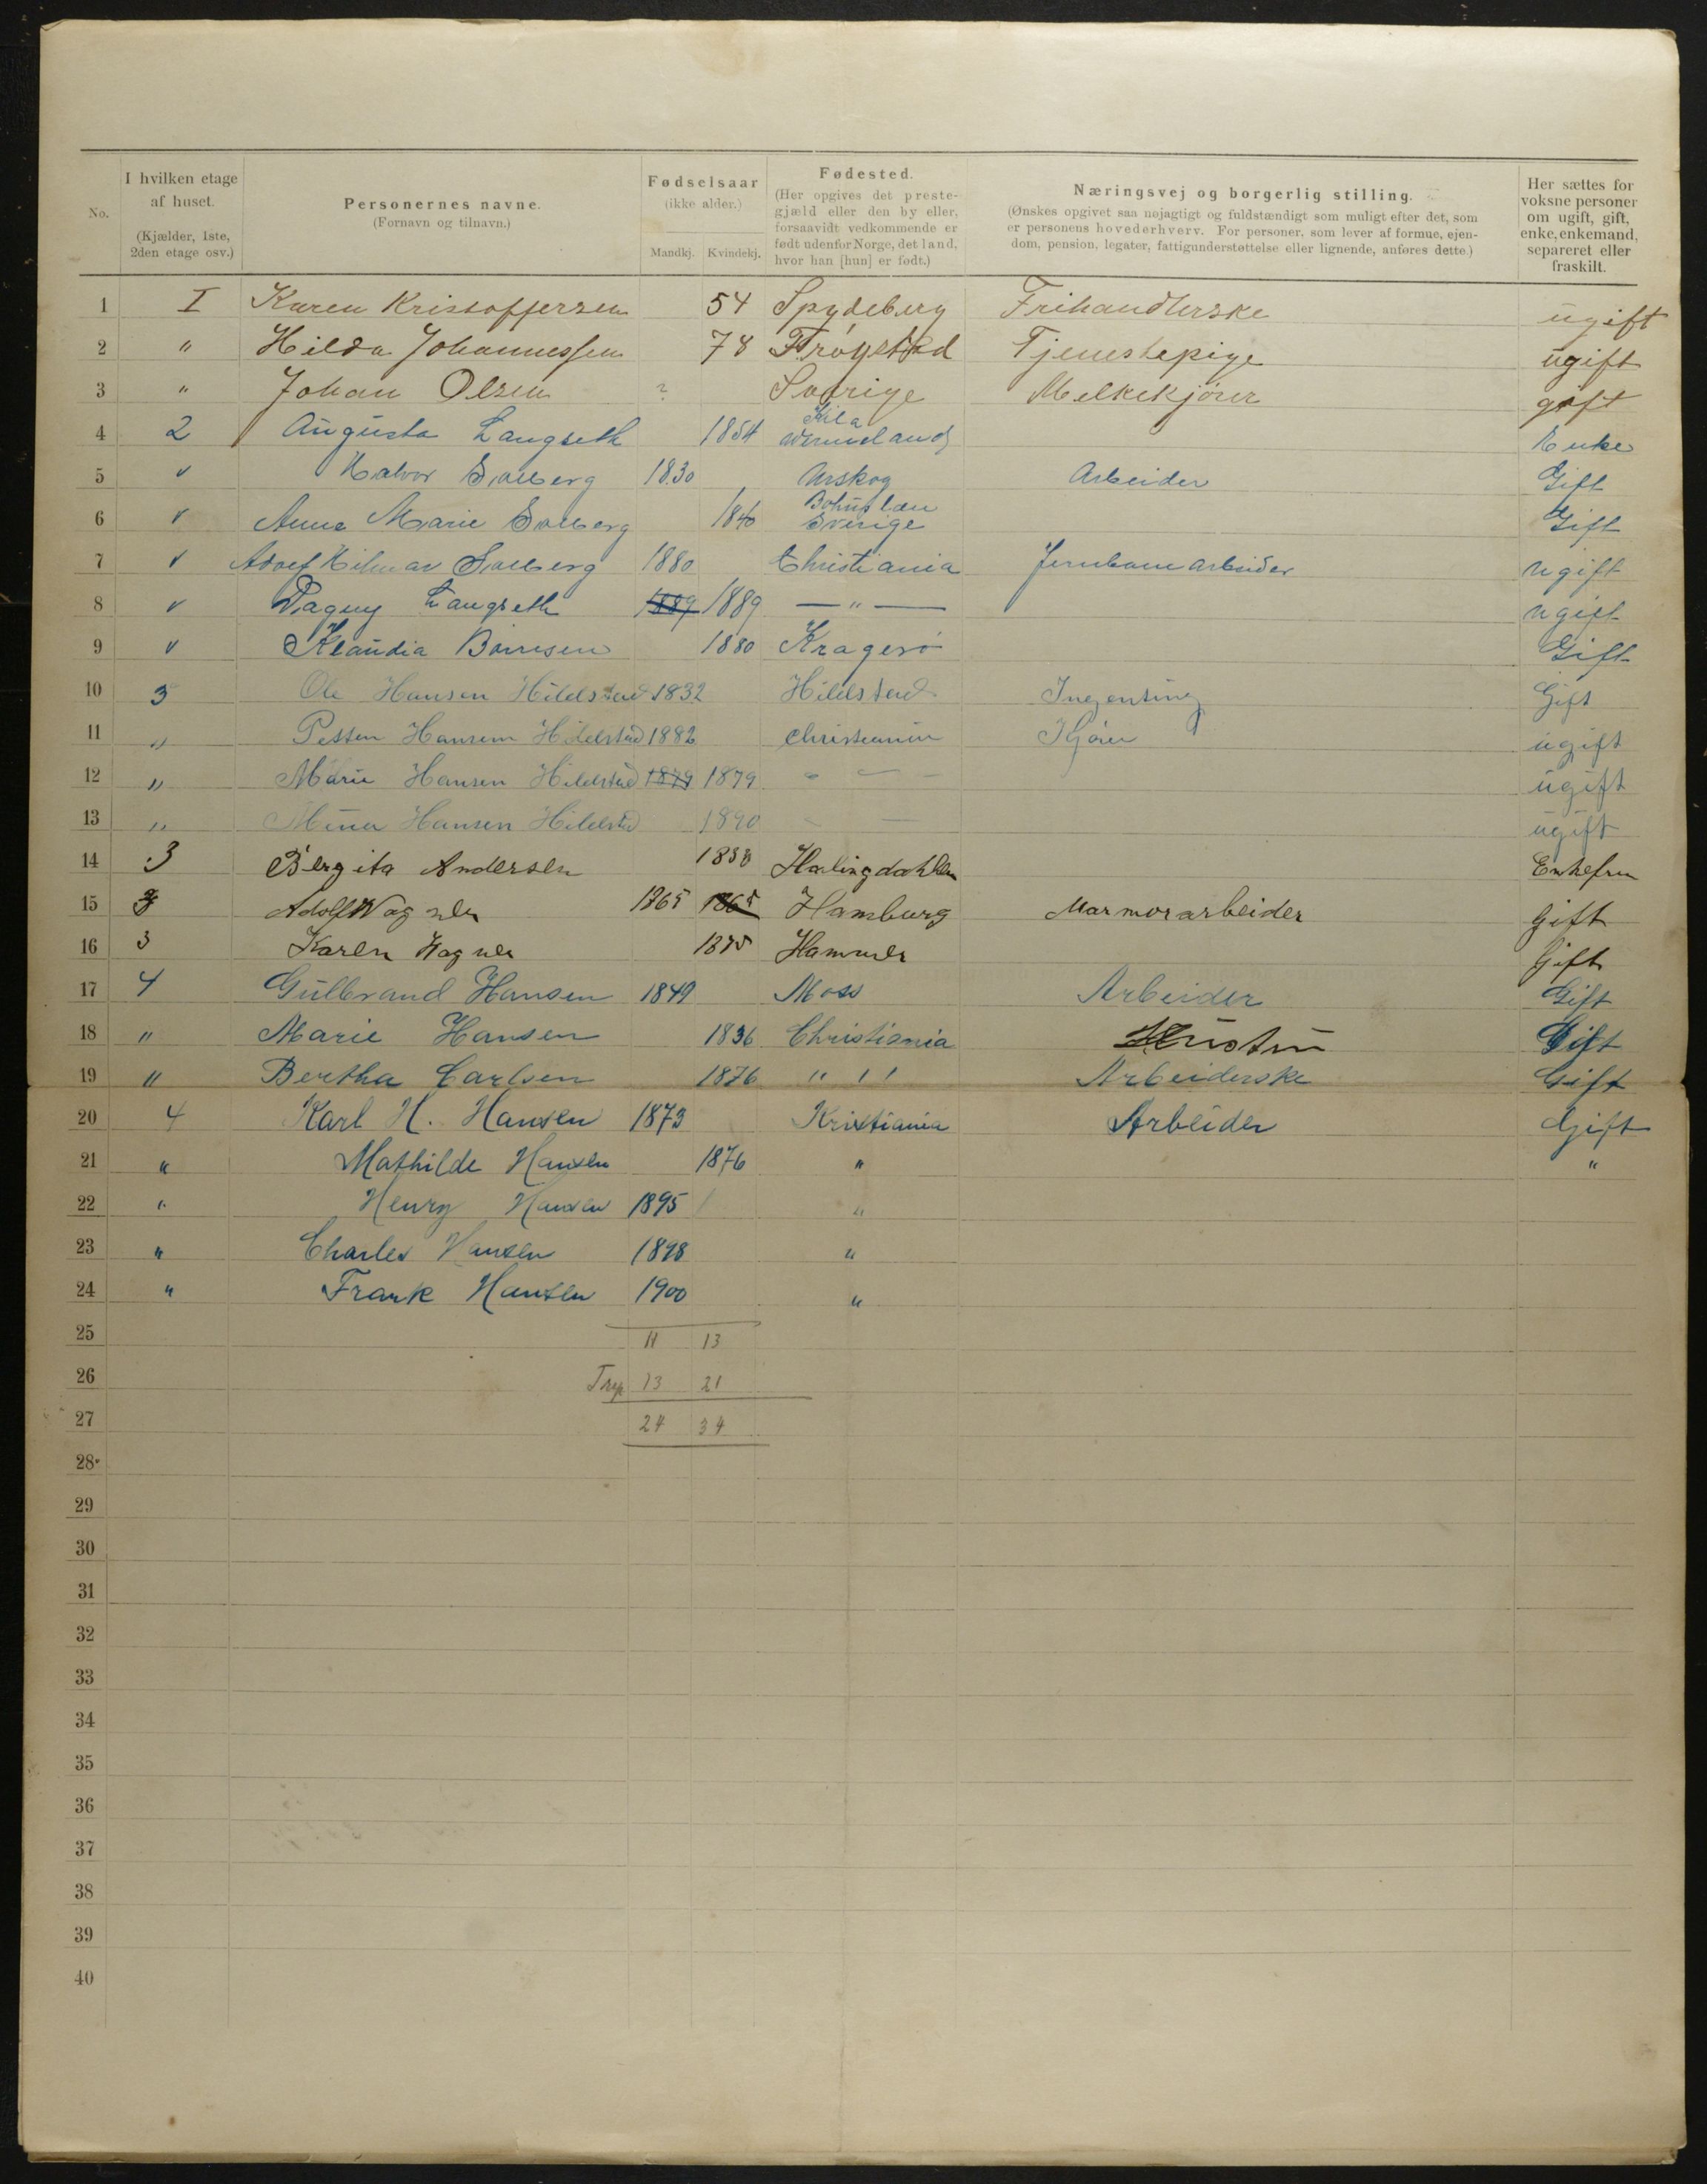 No.
I hvilken etage af huset.
(Kjælder, 1ste, 2den etage osv.)
Personernes navne.
(Fornavn og tilnavn.)
Fødselsaar
(ikke alder.)
Mandkj. Kvindekj.
Fødested.
(Her opgives det prestegjæld eller den by eller, forsaavidt vedkommende er født udenfor Norge, det land, hvor han [hun] er født.)
Næringsvej og borgerlig stilling.
(Ønskes opgivet saa nøjagtigt og fuldstændigt som muligt efter det, som er personens hovederhverv. For personer, som lever af formue, ejendom, pension, legater, fattigunderstøttelse eller lignende, anføres dette.)
Her sættes for voksne personer om ugift, gift, enke, enkemand, separeret eller fraskilt.
1 I Karen Kristoffersen 54 Spydeberg Frihandlerske ugift
2 " Hilda Johannessen 78 Tjenestepige ugift
3 " Johan Olsen ? Sverige Melkekjører gift
4 2 Augusta Langseth 1854 Kila Wermeland Enke
5 v Halvor Solberg 1830 Urskog Arbeider Gift
6 v Anna Marie Solberg 1840 Bohuslæn Sverige Gift
7 v Adolf Hilmar Solberg 1880 Christiania Jernbanearbeider ugift
8 v Dagny Langseth 1889 1889 — " — ugift
9 v Klaudia Børresen 1880 Kragerø Gift
10 3 Ole Hansen Hildstad 1832 Hildstad Ingenting Gift
11 " Hansen Hildstad 1882 Christiania Kjører ugift
12 " Marie Hansen Hildstad 1879 1879 " — ugift
13 " Mina Hansen Hildstad 1890 " — ugift
14 3 Bergita Andersen 1838 Halingdahlen Enkefru
15 3 Adolf Wagner 1865 1865 Hamburg Marmorarbeider gift
16 3 Karen Wagner 1875 Hammer gift
17 4 Gulbrand Hansen 1849 Moss Arbeider Gift
18 " Marie Hansen 1836 Christiania Hustru Gift
19 " Bertha Carlsen 1876 " " Arbeiderske Gift
20 4 Karl H. Hansen 1873 Kristiania Arbeider Gift
21 " Mathilde Hansen 1876 " "
22 " Henry Hansen 1895 "
23 " Charles Hansen 1898 "
24 " Frank Hansen 1900 "
25 11 13
26 13 21
27 24 34
28
29
30
31
32
33
34
35
36
37
38
39
40